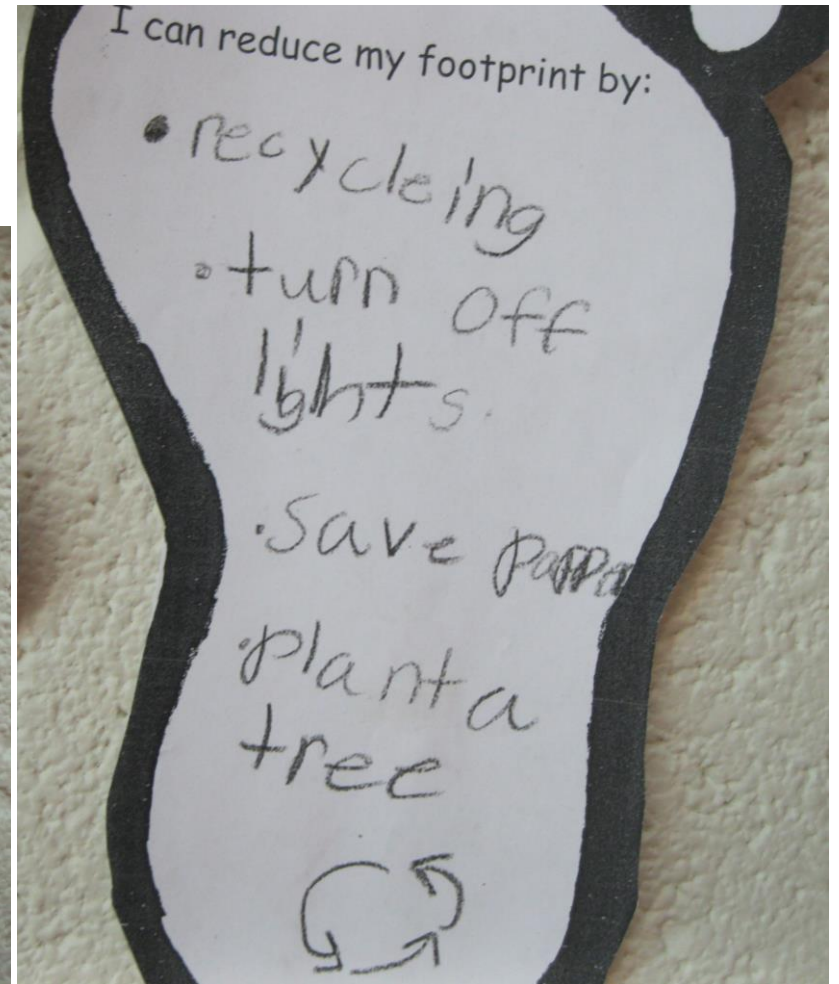 I can reduce my footprint by:
• recycleing
• turn off
lights.
• save
• plant a
tree